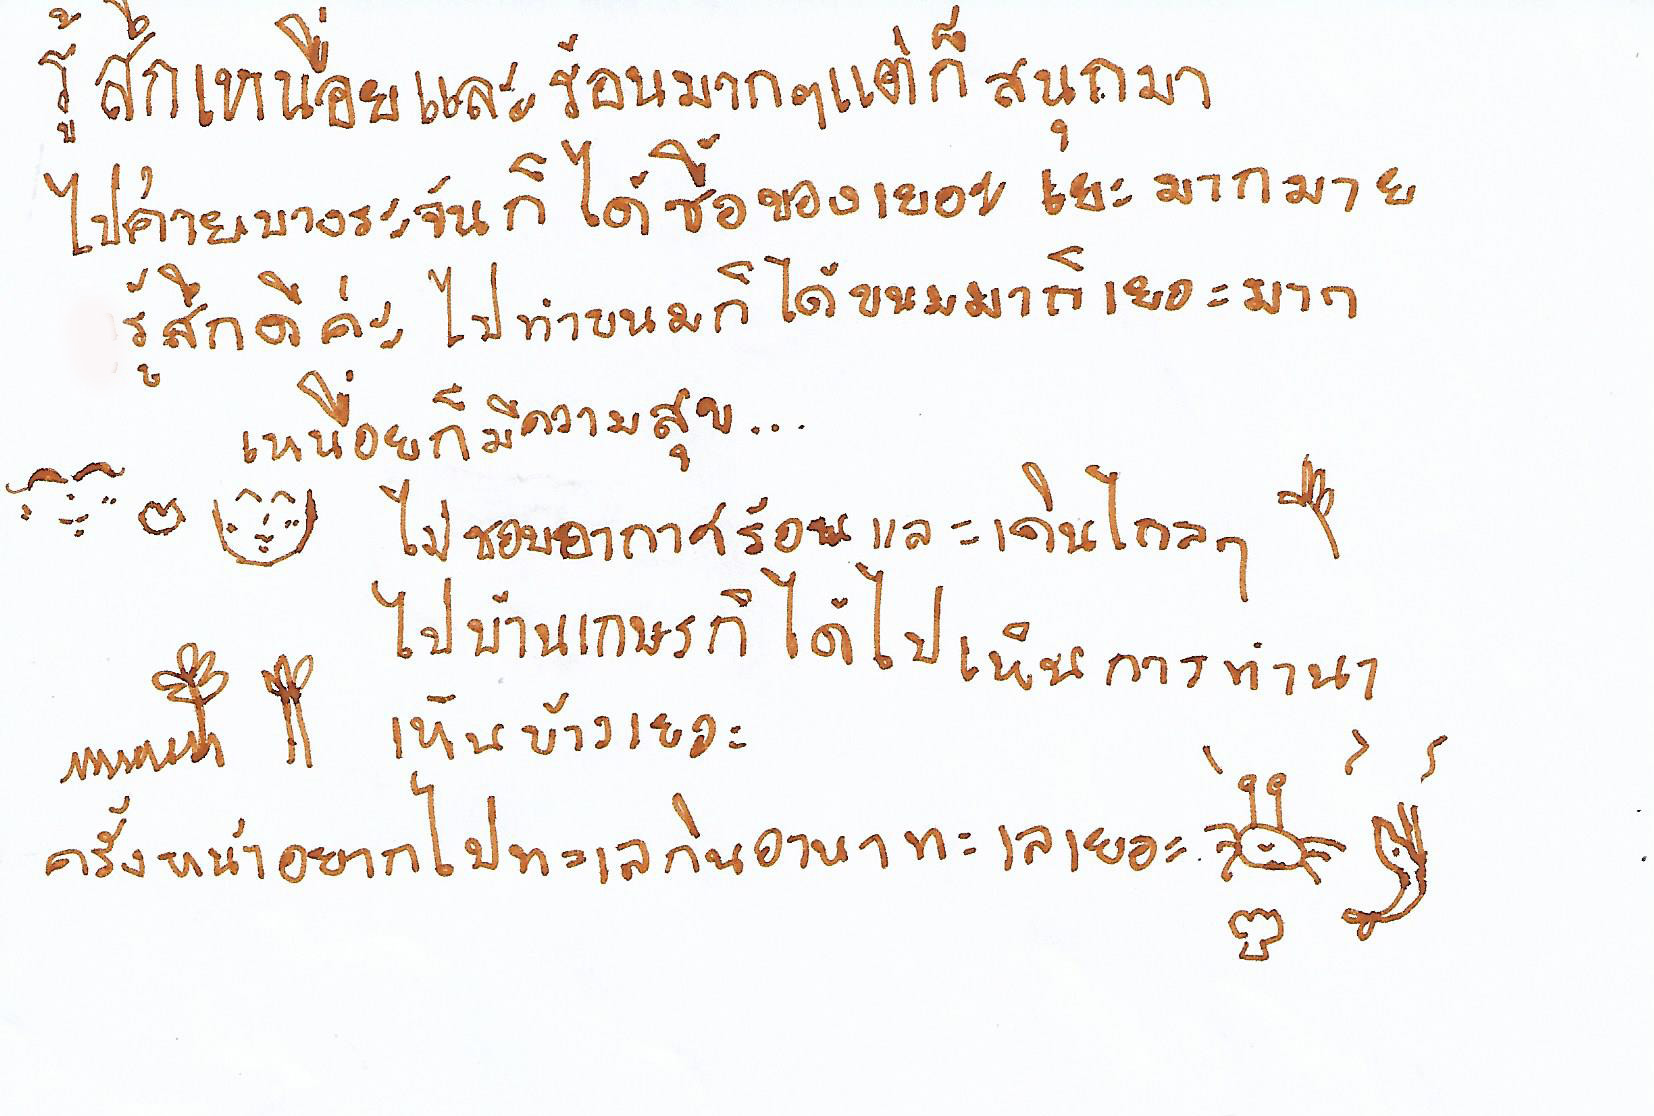 รู้สึกเหนื่อยและร้อนมากๆแต่ก็สนุกมา
ไปค่ายบางระจันก็ได้ซื้อของเยอะเยะมากมาย
รู้สึกดีค่ะ ไปทำขนมก็ได้ขนมมาก็เยอะมาก
เหนื่อยก็มีความสุข...
ไม่ชอบอากาศร้อนและเดินไกลๆ
ไปบ้านเกษรก็ได้ไปเห็นการทำนา
เห็นบ้างเยอะ
ครั้งหน้าอยากไปทะเลกินอานาทะเลเยอะ